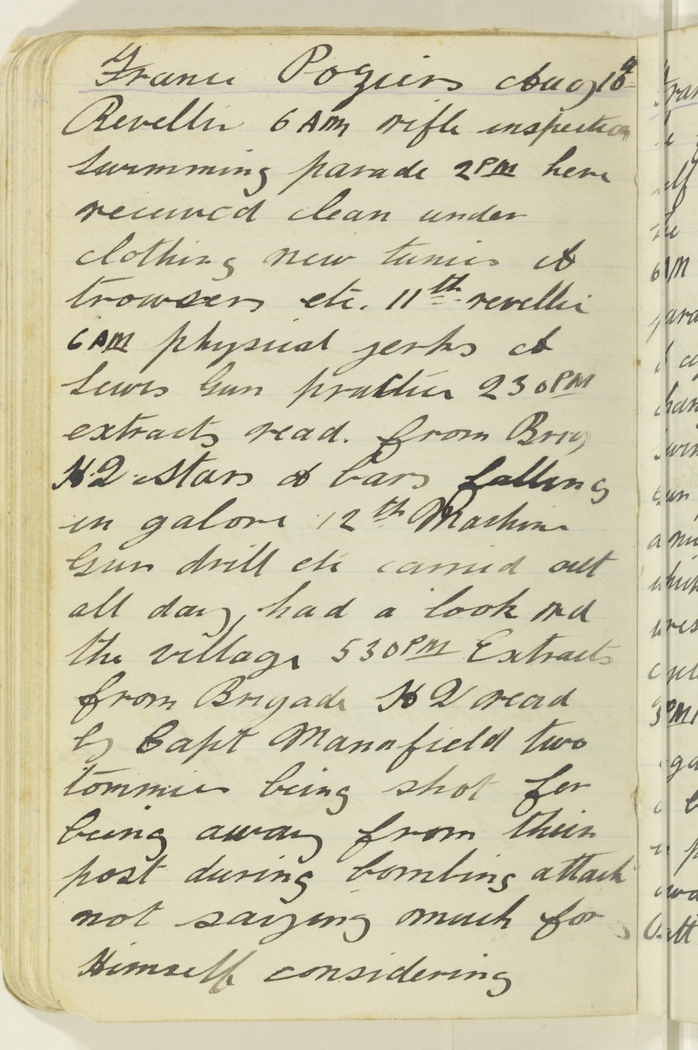 France Poziers Aug 10th
Revellie 6 AM rifle inspection
swimming parade 2PM here
received clean under
clothing new tunics &
trowsers etc. 11th revellie
6AM physical jerks &
Lewis Gun practice 230PM
extracts read. from Brig
HQ Stars & bars falling
in galore 12th Machine
Gun drill etc carried out
all day, had a look rnd
the village 530PM Extracts
from Brigade HQ read
by Capt Mansfield two
tommies being shot for
being away from their
post during bombing attack
not saying much for
Himself considering